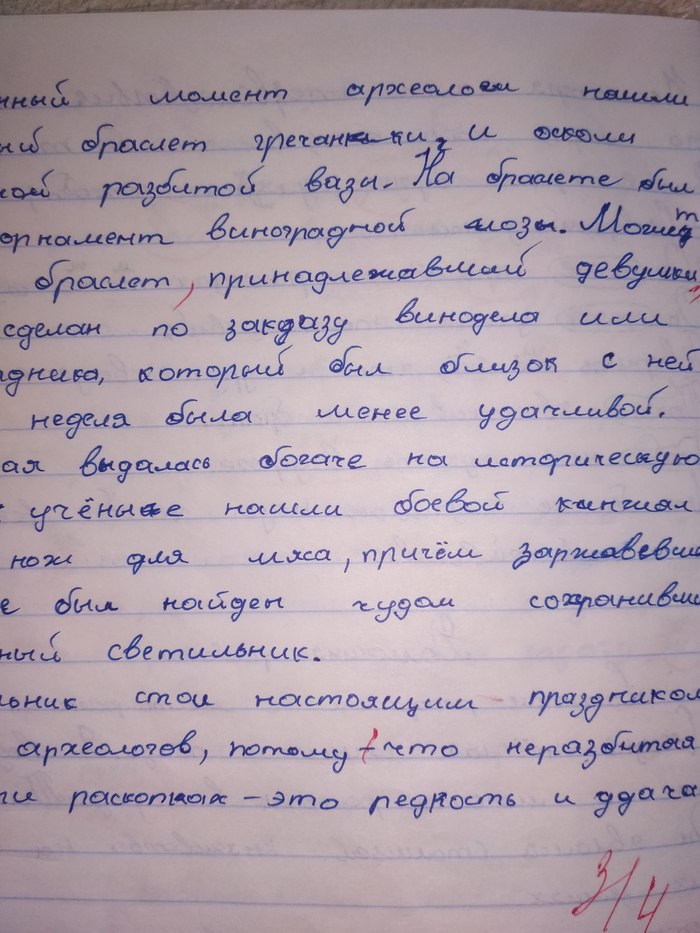 нный момент археологи нашли
ный браслет гречанки, и оскол
кой разбитой вазы. На браслете был
орнамент виноградной лозы. Может
браслет, принадлежавший девушки,
сделан по заказу винодела или
адника, который был близок с ней
неделя была менее удачливой.
ая выдалась богаче на историческую
учёные нашли боевой кингиал
нож для мяса, причём заржавевши
е был найден чудом сохранивши
ный светильник.
льник стал настоящим праздником
археологов, потому-что неразбитая
ги раскопках - это редкость и удача
3/4